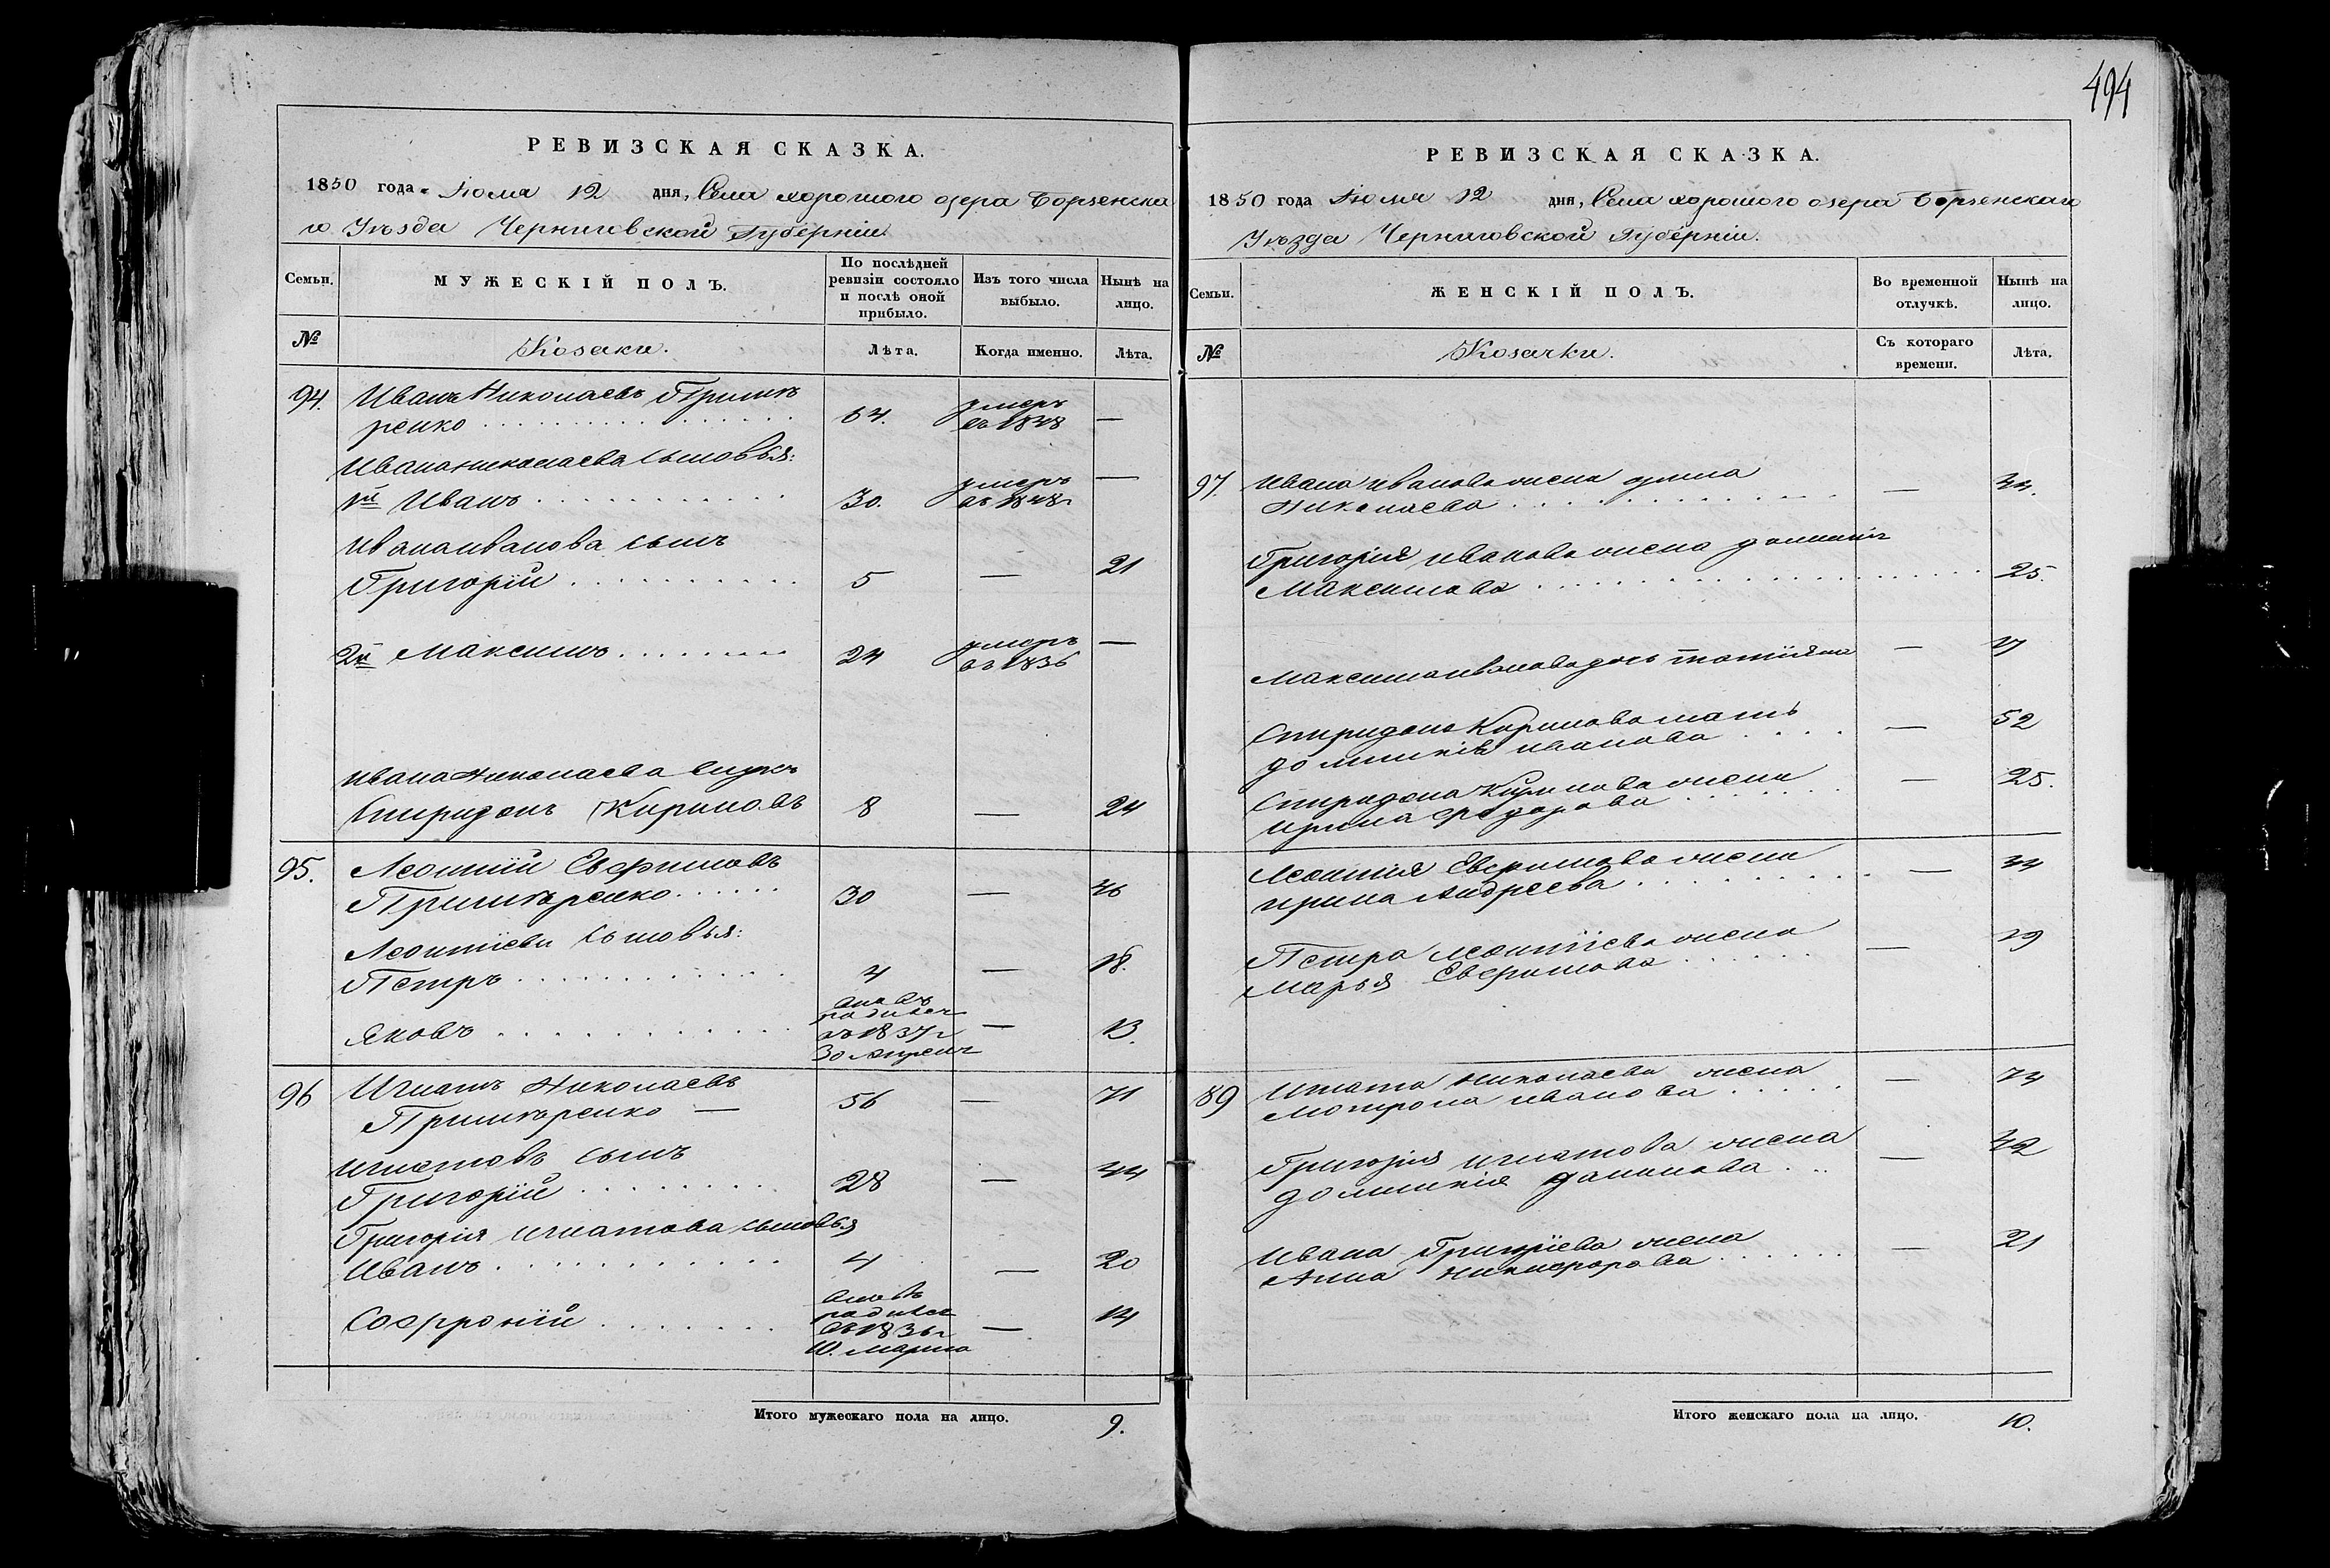 494
РЕВИЗСКАЯ СКАЗКА.
1850 года Іюля 12 дня, Села хорошого озера Борзенска
го Уѣзда Черниговской Губерніи.
Семьи.
МУЖЕСКІЙ ПОЛЪ.
По послѣдней
ревизіи состояло
и послѣ оной
прибыло.
Изъ того числа
выбыло.
Нынѣ на
лицо.
№
Козаки.
Лѣта.
Когда именно.
Лѣта.
94. Иванъ Николаевъ
64. умеръ —
въ 1848
Ивана николаева сыновья:
1й Иванъ 30. умеръ —
въ 1848г
Ивана иванова сынъ
Григорій 5 — 21
2й Максимъ 24 умеръ —
въ 1836
Ивана Николаева внукъ
Спиридонъ Кириловъ 8 — 24
95. Леонтій Евфимовъ
30 — 46
Леонтіевы сыновья:
Петръ 4 — 18.
Яковъ вновь
родился
въ 1837г — 13.
30 Апреля
96 Игнатъ Николаевъ
56 — 71
Игнатовъ сынъ
Григорій 28 — 44
Григорія игнатова сыновья
Иванъ 4 — 20
Софроній вновь
родился
въ 1836г — 14
10. марта
Итого мужескаго пола на лицо. 9.
РЕВИЗСКАЯ СКАЗКА.
1850 года Іюля 12 дня, Села хорошого озера Борзенскаго
Уѣзда Черниговской Губерніи.
Семьи.
ЖЕНСКІЙ ПОЛЪ.
Во временной
отлучкѣ.
Нынѣ на
лицо.
№
Козачки.
Съ котораго
времени.
Лѣта.
97. Ивана иванова жена
Николаева — 44.
Григорія иванова жена
Максимова 25.
Максима иванова дочь татіяна — 17
Спиридона Кирилова мать
домникія иванова — 52
Спиридона Кирилова жена
ирина федорова — 25.
Леонтія Евфимова жена
ирина Андреева — 44
Петра леонтіева жена
Марья Евфимова — 19
89 Игната николаева жена
Мотрона иванова — 74
Григорія игнатова жена
домникія данилова — 42
Ивана Григоріева жена
Анна никифорова — 21
Итого женскаго пола на лицо. 10.